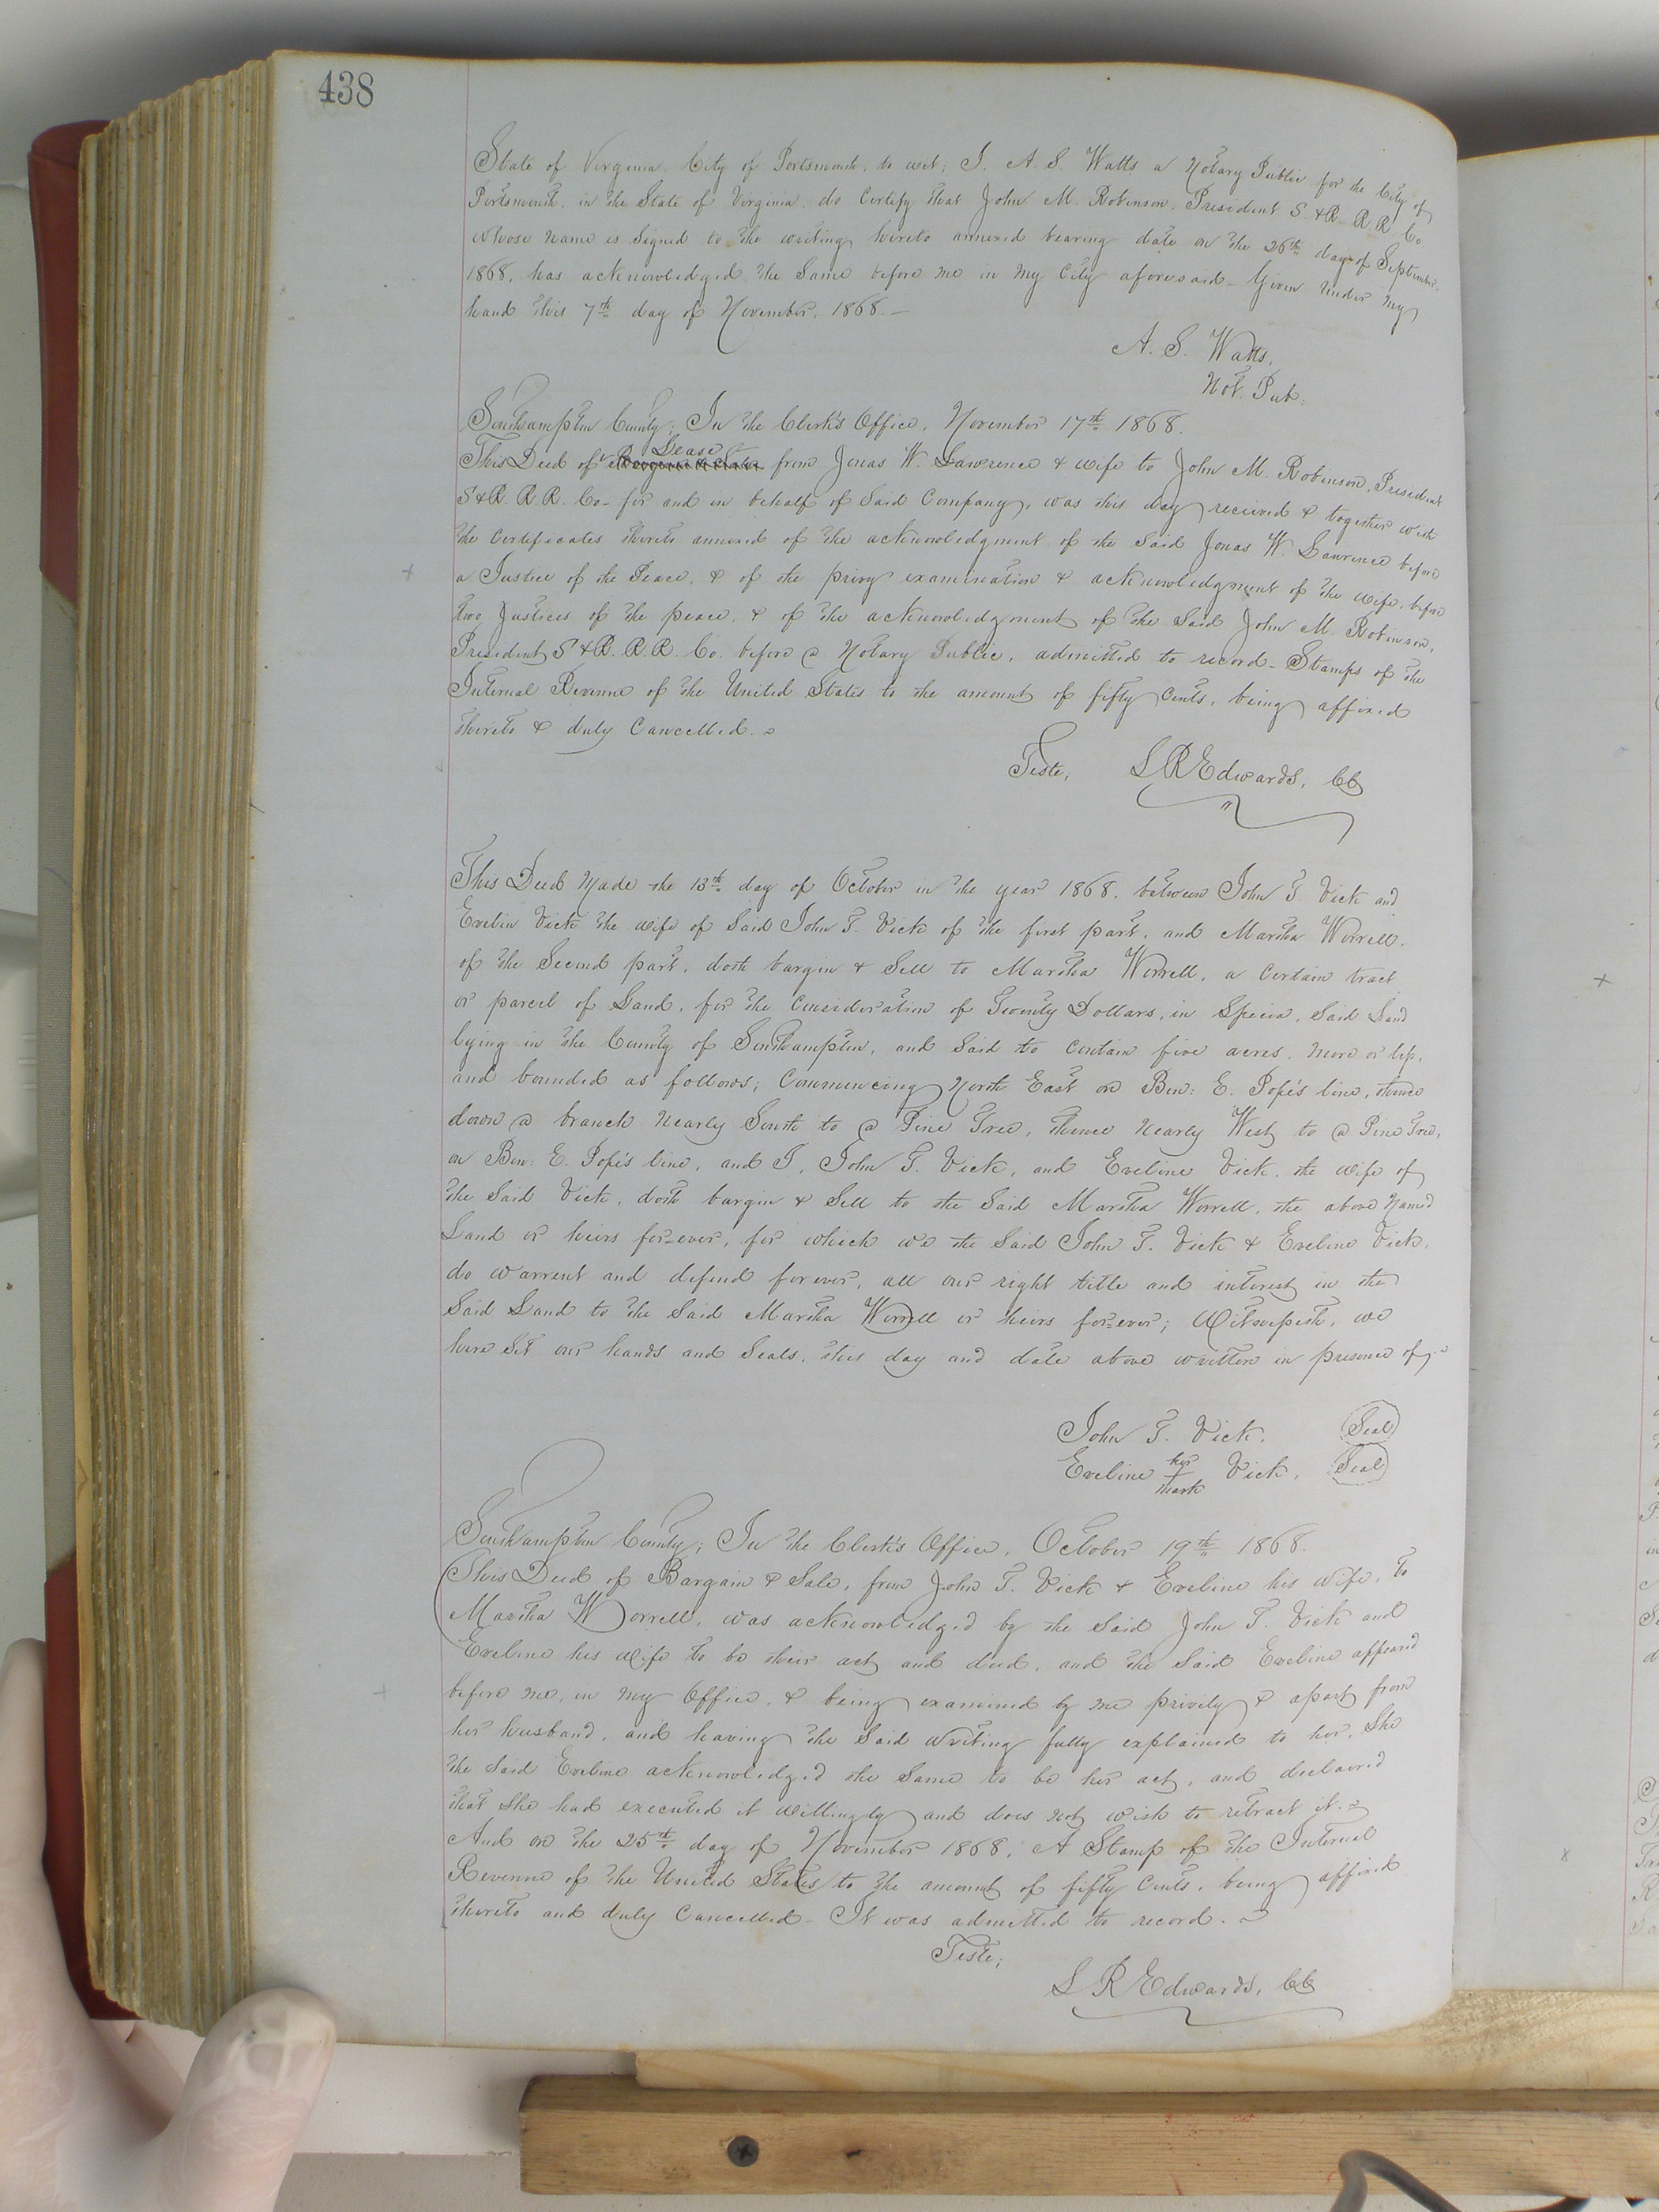 438
State of Virginia, City of Portsmouth, to wit; I, A. S. Watts a Notary Public for the City of
Portsmouth, in the State of Virginia, do Certify that John M. Robinson, President S. & R. R. R. Co
whose name is Signed to the writing hereto annexed bearing date on the 26th day of September,
1868, has acknowledged the Same before me in my City aforesaid - Given Under my
hand this 7th day of November, 1868. -
A. S. Watts,
Not. Pub:
Southampton County; In the Clerk's Office, November 17th 1868.
Lease
This Deed of from Jonas W. Lawrence & wife to John M. Robinson, President
S & R. R. R. Co - for and in behalf of Said Company, was this day received & together with
the Certificates thereto annexed of the acknowledgment of the Said Jonas W. Lawrence before
a Justice of the Peace, & of the privy examination & acknowledgment of the wife, before
two Justices of the peace, & of the acknowledgment of the Said John M. Robinson,
President S & R. R. R. Co. before a Notary Public, admitted to record - Stamps of the
Internal Revenue of the United States to the amount of fifty Cents, being affixed
thereto & duly Cancelled.
Teste, L R Edwards, CC
This Deed Made the 13th day of October in the year 1868, between John T. Vick and
Evelin Vick the wife of Said John T. Vick of the first part, and Martha Worrell,
of the Second part, doth bargin & Sell to Martha Worrell, a Certain tract
or parcel of Land, for the Consideration of Twenty Dollars, in Specia, Said Land
lying in the County of Southampton, and Said to Contain five acres, more or less,
and bounded as follows; Commencing North East on Ben: E. Pope's line, thence
down a branch Nearly South to a Pine Tree, thence Nearly West to a Pine Tree,
on Ben: E. Pope's line, and I, John T. Vick, and Eveline Vick, the wife of
the Said Vick, doth bargin & Sell to the Said Martha Worrell, the above Named
Land or heirs for-ever, for which we the Said John T. Vick & Eveline Vick,
do warrent and defend forever, all our right title and interest in the
Said Land to the Said Martha Worrell or heirs for-ever; we
have Set our hands and Seals, this day and date above written in presence of;
John T. Vick. (Seal)
her
Eveline + Vick. (Seal)
mark
Southampton County; In the Clerk's Office, October 19th 1868.
This Deed of Bargain & Sale, from John T. Vick & Eveline his wife, to
Martha Worrell, was acknowledged by the Said John T. Vick and
Eveline his wife to be their act and deed, and the Said Eveline appeared
before me, in my Office, & being examined by me privily & apart from
her husband, and having the Said Writing fully explained to her, She
the Said Eveline acknowledged the Same to be her act, and declared
that She had executed it willingly and does not wish to retract it.
And on the 25th day of November 1868, A Stamp of the Internal
Revenue of the United States to the amount of fifty Cents, being affixed
thereto and duly Cancelled - It was admitted to record.
Teste;
L R Edwards, CC